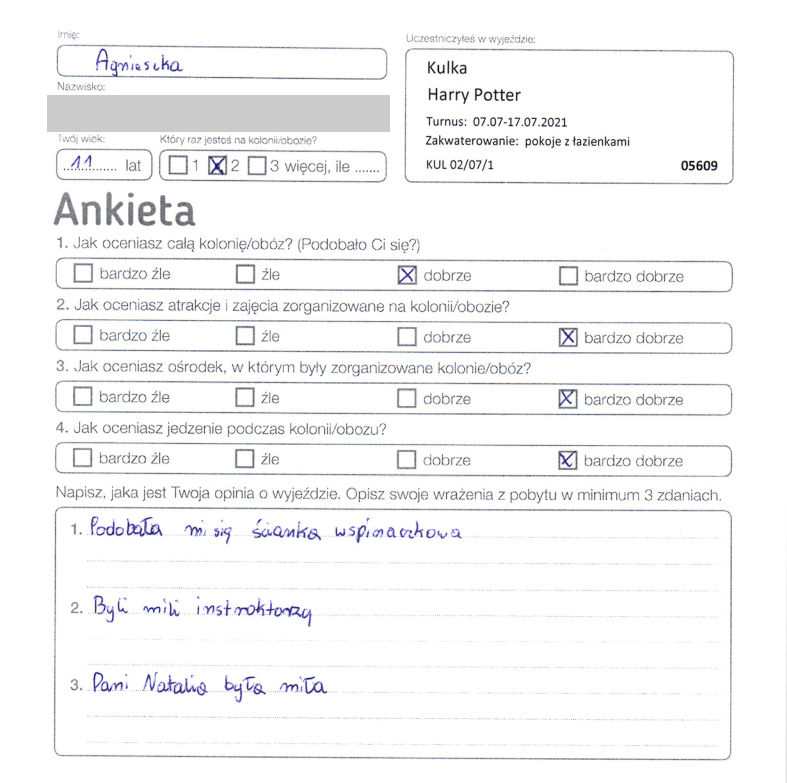 Imię:
Agnieszka
Nazwisko:
Twój wiek:
11 lat
Który raz jesteś na kolonii/obozie?
1 2 3 więcej, ile .......
Uczestniczyłeś w wyjeździe:
Kulka
Harry Potter
Turnus: 07.07-17.07.2021
Zakwaterowanie: pokoje z łazienkami
KUL 02/07/1 05609
Ankieta
1. Jak oceniasz całą kolonię/obóz? (Podobało Ci się?)
bardzo źle źle dobrze bardzo dobrze
2. Jak oceniasz atrakcje i zajęcia zorganizowane na kolonii/obozie?
bardzo źle źle dobrze bardzo dobrze
3. Jak oceniasz ośrodek, w którym były zorganizowane kolonie/obóz?
bardzo źle źle dobrze bardzo dobrze
4. Jak oceniasz jedzenie podczas kolonii/obozu?
bardzo źle źle dobrze bardzo dobrze
Napisz, jaka jest Twoja opinia o wyjeździe. Opisz swoje wrażenia z pobytu w minimum 3 zdaniach.
1. Podobała mi się ścianka wspinaczkowa
2. Byli mili instroktorzy
3. Pani Natalia była miła